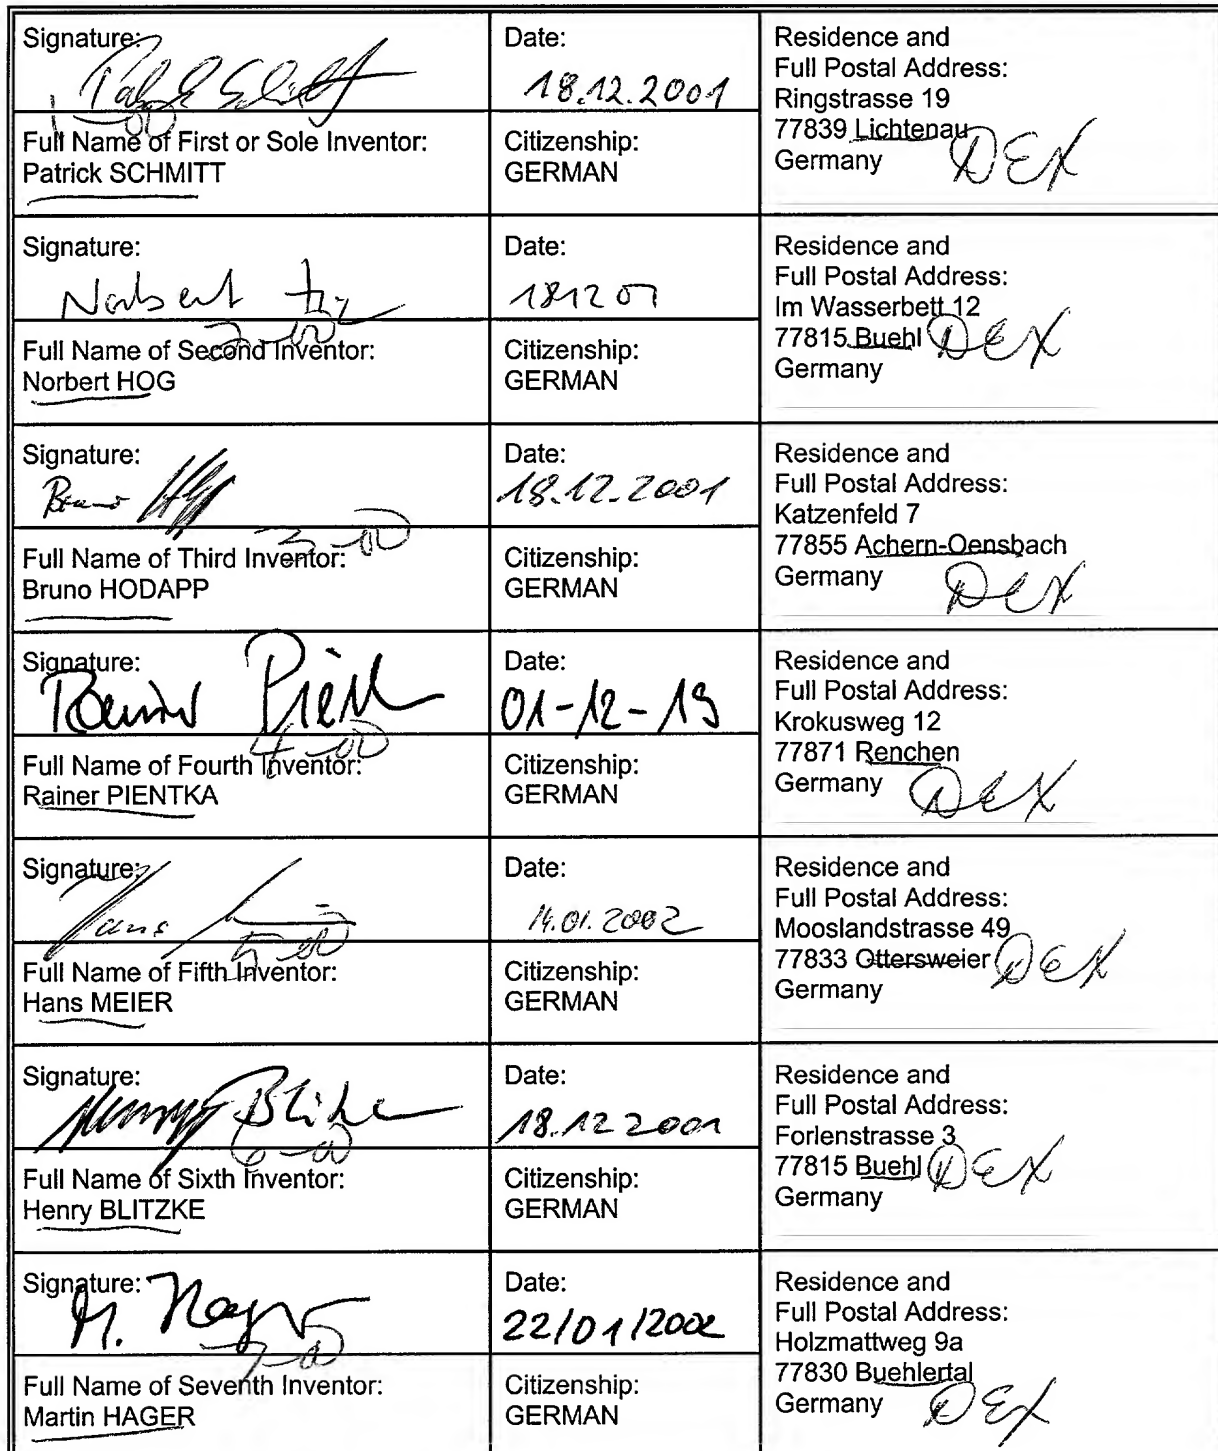 Signature:
Patrick Schmitt
1-00
Date:
18.12.2001
Residence and
Full Postal Address:
Ringstrasse 19
77839 Lichtenau
Germany
DEX
Full Name of First or Sole Inventor:
Patrick SCHMITT
Citizenship:
GERMAN
Signature:
Norbert Hog
2-00
Date:
181201
Residence and
Full Postal Address:
Im Wasserbett 12
77815 Buehl DEX
Germany
Full Name of Second Inventor:
Norbert HOG
Citizenship:
GERMAN
Signature:
Bruno
3-00
Date:
18.12.2001
Residence and
Full Postal Address:
Katzenfeld 7
77855 Achern-Oensbach
Germany
DEX
Full Name of Third Inventor:
Bruno HODAPP
Citizenship:
GERMAN
Signature:
Rainer
4-00
Date:
01-12-19
Residence and
Full Postal Address:
Krokusweg 12
77871 Renchen
Germany
DEX
Full Name of Fourth Inventor:
Rainer PIENTKA
Citizenship:
GERMAN
Signature:
Hans
5-00
Date:
14.01.2002
Residence and
Full Postal Address:
Mooslandstrasse 49
77833 Ottersweier DEX
Germany
Full Name of Fifth Inventor:
Hans MEIER
Citizenship:
GERMAN
Signature:
Henry
6-00
Date:
18.12 2001
Residence and
Full Postal Address:
Forlenstrasse 3
77815 Buehl DEX
Germany
Full Name of Sixth Inventor:
Henry BLITZKE
Citizenship:
GERMAN
Signature:
M. Hager
7-00
Date:
22/01/2002
Residence and
Full Postal Address:
Holzmattweg 9a
77830 Buehlertal
Germany
DEX
Full Name of Seventh Inventor:
Martin HAGER
Citizenship:
GERMAN